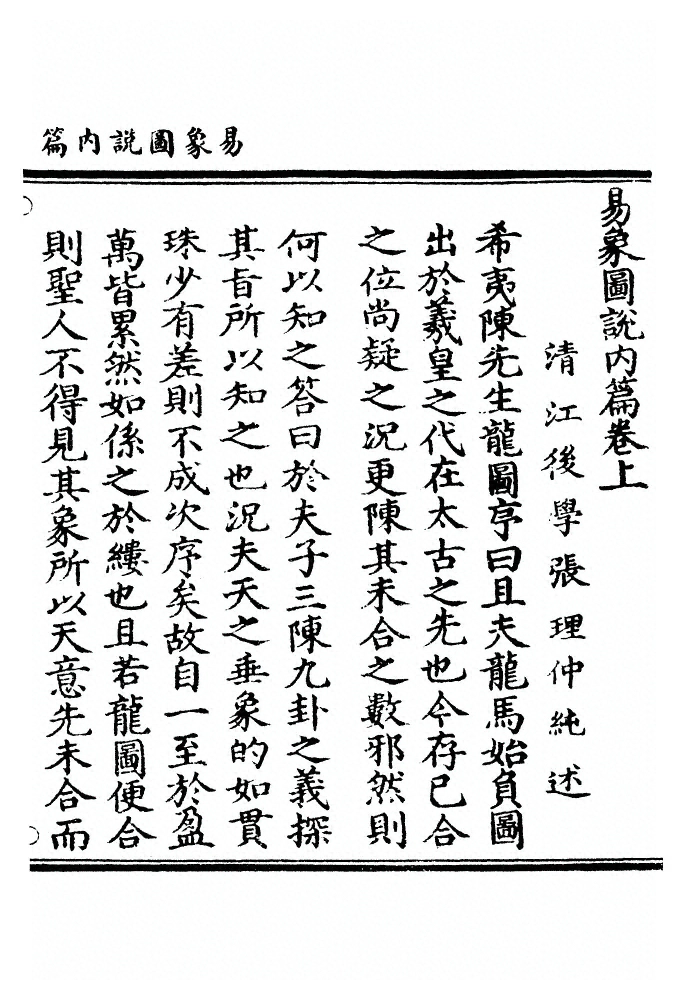 易象圖說內篇
易象圖說內篇卷上
清江後學張理仲純述
希夷陳先生龍圖序曰且夫龍馬始負圖
出於羲皇之代在太古之先也今存已合
之位尚疑之況更陳其未合之數邪然則
何以知之答曰於夫子三陳九卦之義探
其旨所以知之也況夫天之垂象的如貫
珠少有差則不成次序矣故自一至於盈
萬皆累然如係之於縷也且若龍圖便合
則聖人不得見其象所以天意先未合而